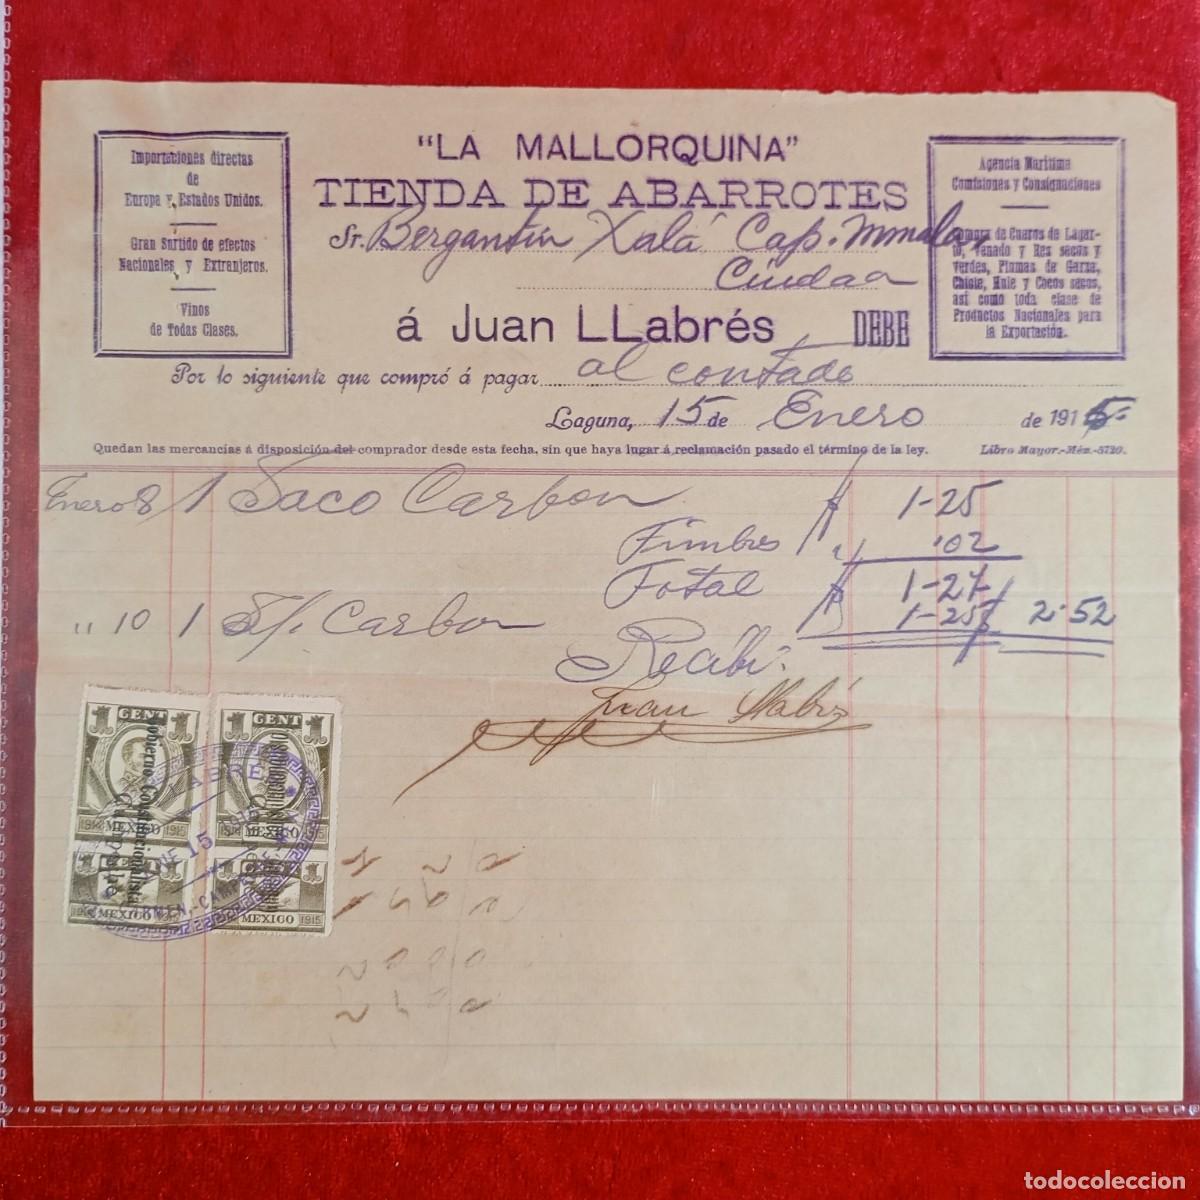 "LA MALLORQUINA"
TIENDA DE ABARROTES
Importaciones directas
de
Europa y Estados Unidos.
Gran Surtido de efectos
Nacionales y Extranjeros.
Vinos
de Todas Clases.
Agencia Marítima
Comisiones y Consignaciones
Compra de Cueros de Lagar-
to, Venado y Res secos y
verdes, Plumas de Garza,
Chicle, Hule y Cocos secos,
así como toda clase de
Productos Nacionales para
la Exportación.
Sr. Bergantin Xalá Cap.
Ciudad
á Juan LLabrés DEBE
Por lo siguiente que compró á pagar al contado
Laguna, 15 de Enero de 1915
Quedan las mercancías á disposición del comprador desde esta fecha, sin que haya lugar á reclamación pasado el término de la ley. Libro Mayor.-Méx.-5720.
Enero 8/ 1 Saco Carbon $ 1-25
Timbres " .02
Total $ 1-27
" 10 1 S/. Carbon 1-25 $ 2.52
Recibi:
Juan Llabrés
1 CENT 1
1914 MEXICO 1915
Gobierno Constitucionalista
Campeche
1 CENT 1
1914 MEXICO 1915
1 CENT 1
MEXICO
1 CENT 1
MEXICO 1915
LABRE
ENE 15
CARMEN, CAMPECHE
todocoleccion